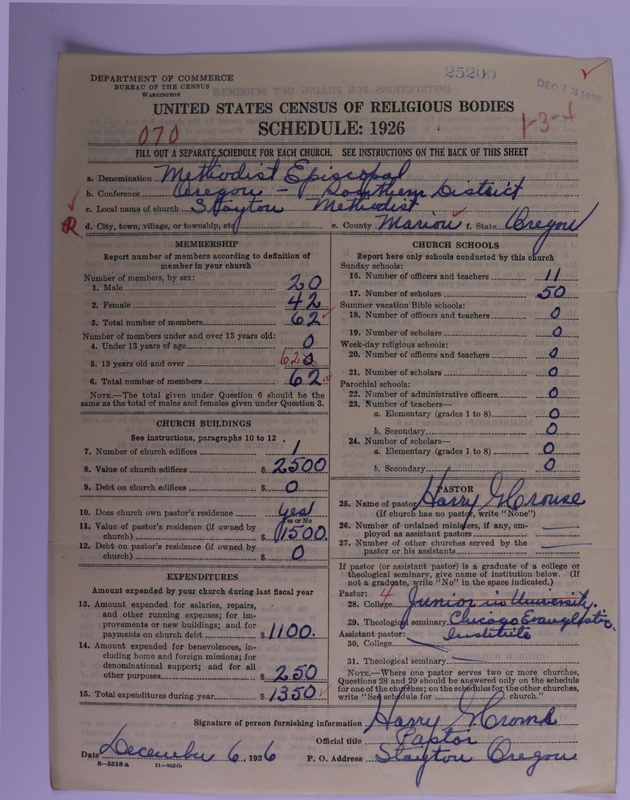 25200
DEC 13 1926
DEPARTMENT OF COMMERCE
BUREAU OF THE CENSUS
WASHINGTON
UNITED STATES CENSUS OF RELIGIOUS BODIES
SCHEDULE: 1926
070
1-3-4
FILL OUT A SEPARATE SCHEDULE FOR EACH CHURCH. SEE INSTRUCTIONS ON THE BACK OF THIS SHEET
a. Denomination Methodist Episcopal
b. Conference Oregon - Southern District
c. Local name of church Stayton Methodist
R d. City, town, village, or township, etc. e. County Marion f. State Oregon
MEMBERSHIP
Report number of members according to definition of
member in your church
Number of members, by sex:
1. Male 20
2. Female 42
3. Total number of members 62
Number of members under and over 13 years old:
4. Under 13 years of age 0
5. 13 years old and over 62 0
6. Total number of members 62
NOTE.—The total given under Question 6 should be
same as the total of males and females given under Question 3.
CHURCH BUILDINGS
See instructions, paragraphs 10 to 12
7. Number of church edifices 1
8. Value of church edifices $ 2500
9. Debt on church edifices $ 0
10. Does church own pastor's residence yes
Yes or No
11. Value of pastor's residence (if owned by
church) $ 1500
12. Debt on pastor's residence (if owned by
church) $ 0
EXPENDITURES
Amount expended by your church during last fiscal year
13. Amount expended for salaries, repairs,
and other running expenses; for im-
provements or new buildings; and for
payments on church debt $ 1100.
14. Amount expended for benevolences, in-
cluding home and foreign missions; for
denominational support; and for all
other purposes $ 250
15. Total expenditures during year $ 1350
CHURCH SCHOOLS
Report here only schools conducted by this church
Sunday schools:
16. Number of officers and teachers 11
17. Number of scholars 50
Summer vacation Bible schools:
18. Number of officers and teachers 0
19. Number of scholars 0
Week-day religious schools:
20. Number of officers and teachers 0
21. Number of scholars 0
Parochial schools:
22. Number of administrative officers 0
23. Number of teachers—
a. Elementary (grades 1 to 8) 0
b. Secondary 0
24. Number of scholars—
a. Elementary (grades 1 to 8) 0
b. Secondary 0
PASTOR
25. Name of pastor Harry G Crouse
(If church has no pastor, write "None")
26. Number of ordained ministers, if any, em-
ployed as assistant pastors
27. Number of other churches served by the
pastor or his assistants
If pastor (or assistant pastor) is a graduate of a college or
theological seminary, give name of institution below. (If
not a graduate, write "No" in the space indicated.)
Pastor: 4
28. College Junior in University.
29. Theological seminary Chicago Evanglistic
Assistant pastor: Institute
30. College
31. Theological seminary
NOTE.—Where one pastor serves two or more churches,
Questions 28 and 29 should be answered only on the schedule
for one of the churches; on the schedules for the other churches,
write "See schedule for church."
Signature of person furnishing information Harry G Crouse
Official title Pastor
Date December 6, 1926 P. O. Address Stayton Oregon
8-5518 a 11-9054b